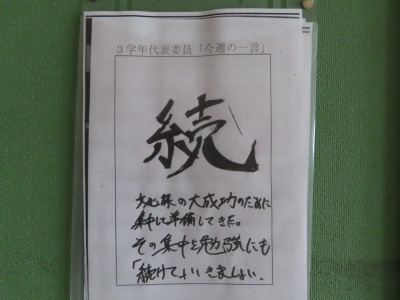 3学年代表委員「今週の一言」
続
文化祭の大成功のために
集中して準備してきた。
その集中を勉強にも
「続けて」いきましょい.